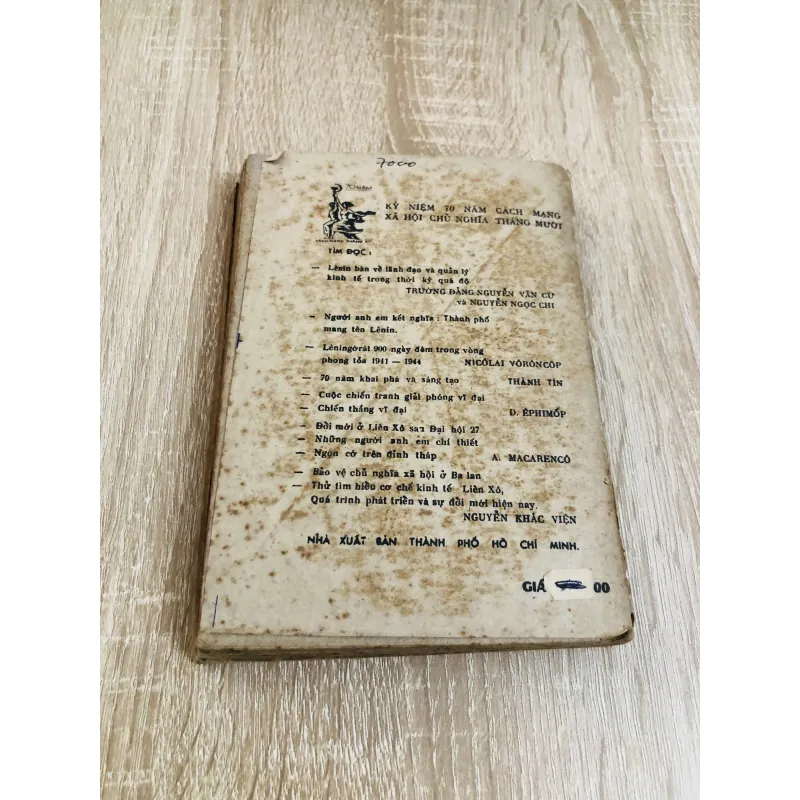 7000
70 NĂM
KỶ NIỆM 70 NĂM CÁCH MẠNG
XÃ HỘI CHỦ NGHĨA THÁNG MƯỜI
TÌM ĐỌC :
— Lênin bàn về lãnh đạo và quản lý
kinh tế trong thời kỳ quá độ
TRƯƠNG ĐẶNG NGUYỄN VĂN CỪ
và NGUYỄN NGỌC CHI
— Người anh em kết nghĩa : Thành phố
mang tên Lênin.
— Lêningơrát 900 ngày đêm trong vòng
phong tỏa 1941 — 1944 NICÔLAI VÔRÔNCỐP
— 70 năm khai phá và sáng tạo THÀNH TÍN
— Cuộc chiến tranh giải phóng vĩ đại
— Chiến thắng vĩ đại D. ÊPHIMỐP
— Đổi mới ở Liên Xô sau Đại hội 27
— Những người anh em chí thiết
— Ngọn cờ trên đỉnh tháp A. MACARENCÔ
— Bảo vệ chủ nghĩa xã hội ở Ba lan
— Thử tìm hiểu cơ chế kinh tế Liên Xô,
Quá trình phát triển và sự đổi mới hiện nay.
NGUYỄN KHẮC VIỆN
NHÀ XUẤT BẢN THÀNH PHỐ HỒ CHÍ MINH.
GIÁ 00